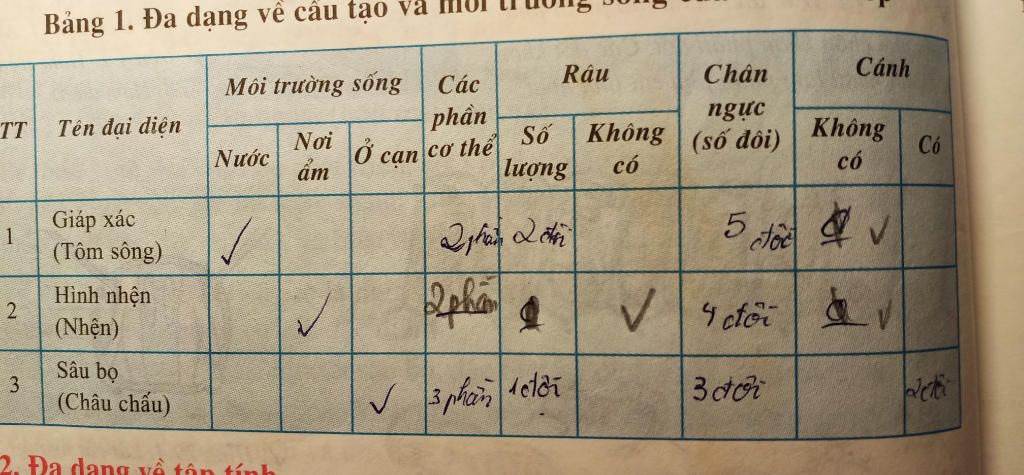 Bảng 1. Đa dạng về cấu tạo và môi trường sống
TT Tên đại diện Môi trường sống Các phần cơ thể Râu Chân ngực (số đôi) Cánh
Nước Nơi ẩm Ở cạn Số lượng Không có Không có Có
1 Giáp xác (Tôm sông) ✓ 2 phần 2 đôi 5 đôi ✓
2 Hình nhện (Nhện) ✓ 2 phần ✓ 4 đôi ✓
3 Sâu bọ (Châu chấu) ✓ 3 phần 1 đôi 3 đôi 2 đôi
2. Đa dạng về tập tính